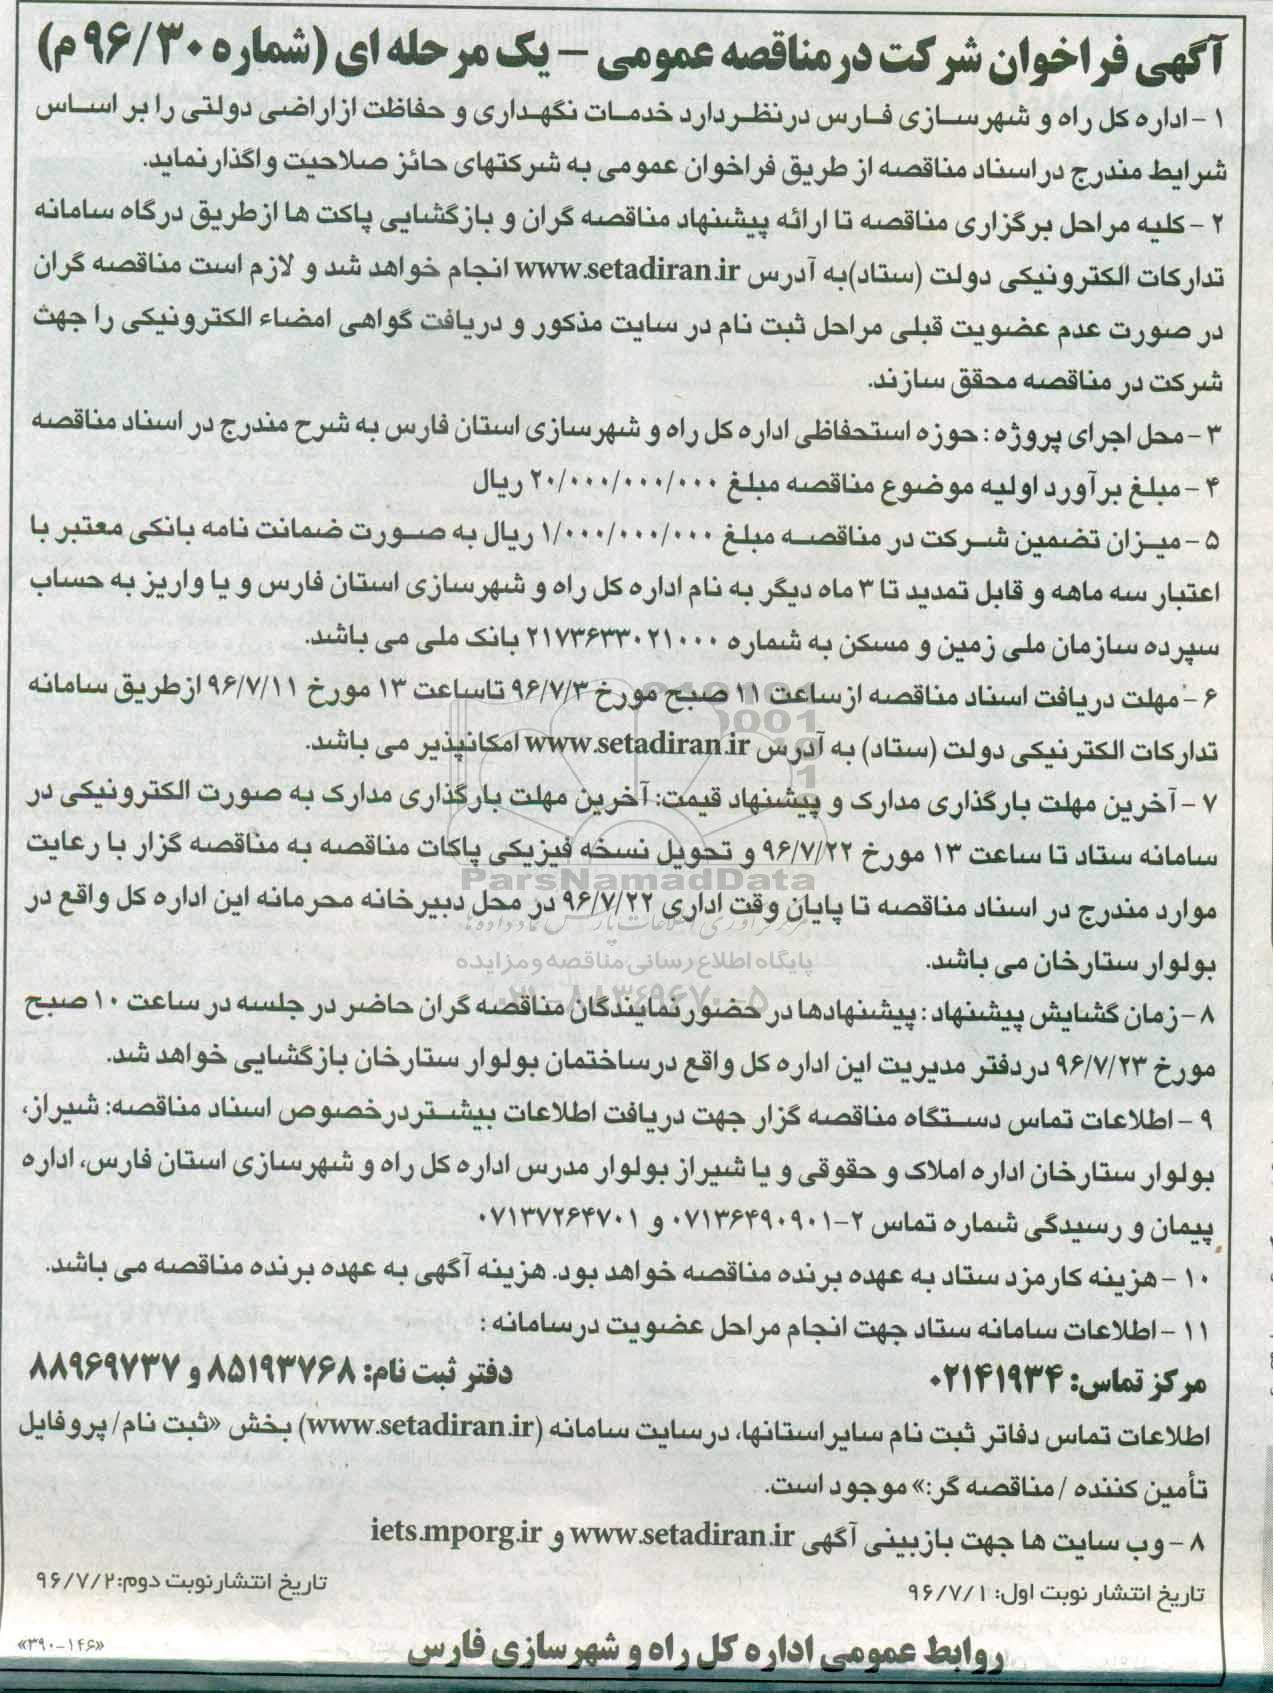 آگهی فراخوان شرکت در مناقصه عمومی – یک مرحله ای (شماره ۹۶/۳۰ م)
۱ - اداره کل راه و شهرسازی فارس درنظر دارد خدمات نگهداری و حفاظت از اراضی دولتی را بر اساس
شرایط مندرج در اسناد مناقصه از طریق فراخوان عمومی به شرکتهای حائز صلاحیت واگذار نماید.
۲ - کلیه مراحل برگزاری مناقصه تا ارائه پیشنهاد مناقصه گران و بازگشایی پاکت ها از طریق درگاه سامانه
تدارکات الکترونیکی دولت (ستاد) به آدرس www.setadiran.ir انجام خواهد شد و لازم است مناقصه گران
در صورت عدم عضویت قبلی مراحل ثبت نام در سایت مذکور و دریافت گواهی امضاء الکترونیکی را جهت
شرکت در مناقصه محقق سازند.
۳ - محل اجرای پروژه : حوزه استحفاظی اداره کل راه و شهرسازی استان فارس به شرح مندرج در اسناد مناقصه
۴ - مبلغ برآورد اولیه موضوع مناقصه مبلغ ۲۰/۰۰۰/۰۰۰/۰۰۰ ریال
۵ - میزان تضمین شرکت در مناقصه مبلغ ۱/۰۰۰/۰۰۰/۰۰۰ ریال به صورت ضمانت نامه بانکی معتبر با
اعتبار سه ماهه و قابل تمدید تا ۳ ماه دیگر به نام اداره کل راه و شهرسازی استان فارس و یا واریز به حساب
سپرده سازمان ملی زمین و مسکن به شماره ۲۱۷۳۶۳۳۰۲۱۰۰۰ بانک ملی می باشد.
۶ - مهلت دریافت اسناد مناقصه از ساعت ۱۱ صبح مورخ ۹۶/۷/۳ تا ساعت ۱۳ مورخ ۹۶/۷/۱۱ از طریق سامانه
تدارکات الکترنیکی دولت (ستاد) به آدرس www.setadiran.ir امکانپذیر می باشد.
۷ - آخرین مهلت بارگذاری مدارک و پیشنهاد قیمت: آخرین مهلت بارگذاری مدارک به صورت الکترونیکی در
سامانه ستاد تا ساعت ۱۳ مورخ ۹۶/۷/۲۲ و تحویل نسخه فیزیکی پاکات مناقصه به مناقصه گزار با رعایت
ParsNamadData
موارد مندرج در اسناد مناقصه تا پایان وقت اداری ۹۶/۷/۲۲ در محل دبیرخانه محرمانه این اداره کل واقع در
پایگاه اطلاع رسانی مناقصه و مزایده
بولوار ستارخان می باشد.
۰۲۱-۸۸۳۴۹۶۷۰-۵
۸ - زمان گشایش پیشنهاد : پیشنهادها در حضور نمایندگان مناقصه گران حاضر در جلسه در ساعت ۱۰ صبح
مورخ ۹۶/۷/۲۳ در دفتر مدیریت این اداره کل واقع در ساختمان بولوار ستارخان بازگشایی خواهد شد.
۹ - اطلاعات تماس دستگاه مناقصه گزار جهت دریافت اطلاعات بیشتر درخصوص اسناد مناقصه: شیراز،
بولوار ستارخان اداره املاک و حقوقی و یا شیراز بولوار مدرس اداره کل راه و شهرسازی استان فارس، اداره
پیمان و رسیدگی شماره تماس ۲-۰۷۱۳۶۴۹۰۹۰۱ و ۰۷۱۳۷۲۶۴۷۰۱
۱۰ - هزینه کارمزد ستاد به عهده برنده مناقصه خواهد بود. هزینه آگهی به عهده برنده مناقصه می باشد.
۱۱ - اطلاعات سامانه ستاد جهت انجام مراحل عضویت در سامانه :
مرکز تماس: ۰۲۱۴۱۹۳۴ دفتر ثبت نام: ۸۵۱۹۳۷۶۸ و ۸۸۹۶۹۷۳۷
اطلاعات تماس دفاتر ثبت نام سایر استانها، در سایت سامانه (www.setadiran.ir) بخش «ثبت نام/ پروفایل
تأمین کننده / مناقصه گر:» موجود است.
۸ - وب سایت ها جهت بازبینی آگهی www.setadiran.ir و iets.mporg.ir
تاریخ انتشار نوبت اول: ۹۶/۷/۱ تاریخ انتشار نوبت دوم: ۹۶/۷/۲
روابط عمومی اداره کل راه و شهرسازی فارس
«۳۹۰-۱۴۶»